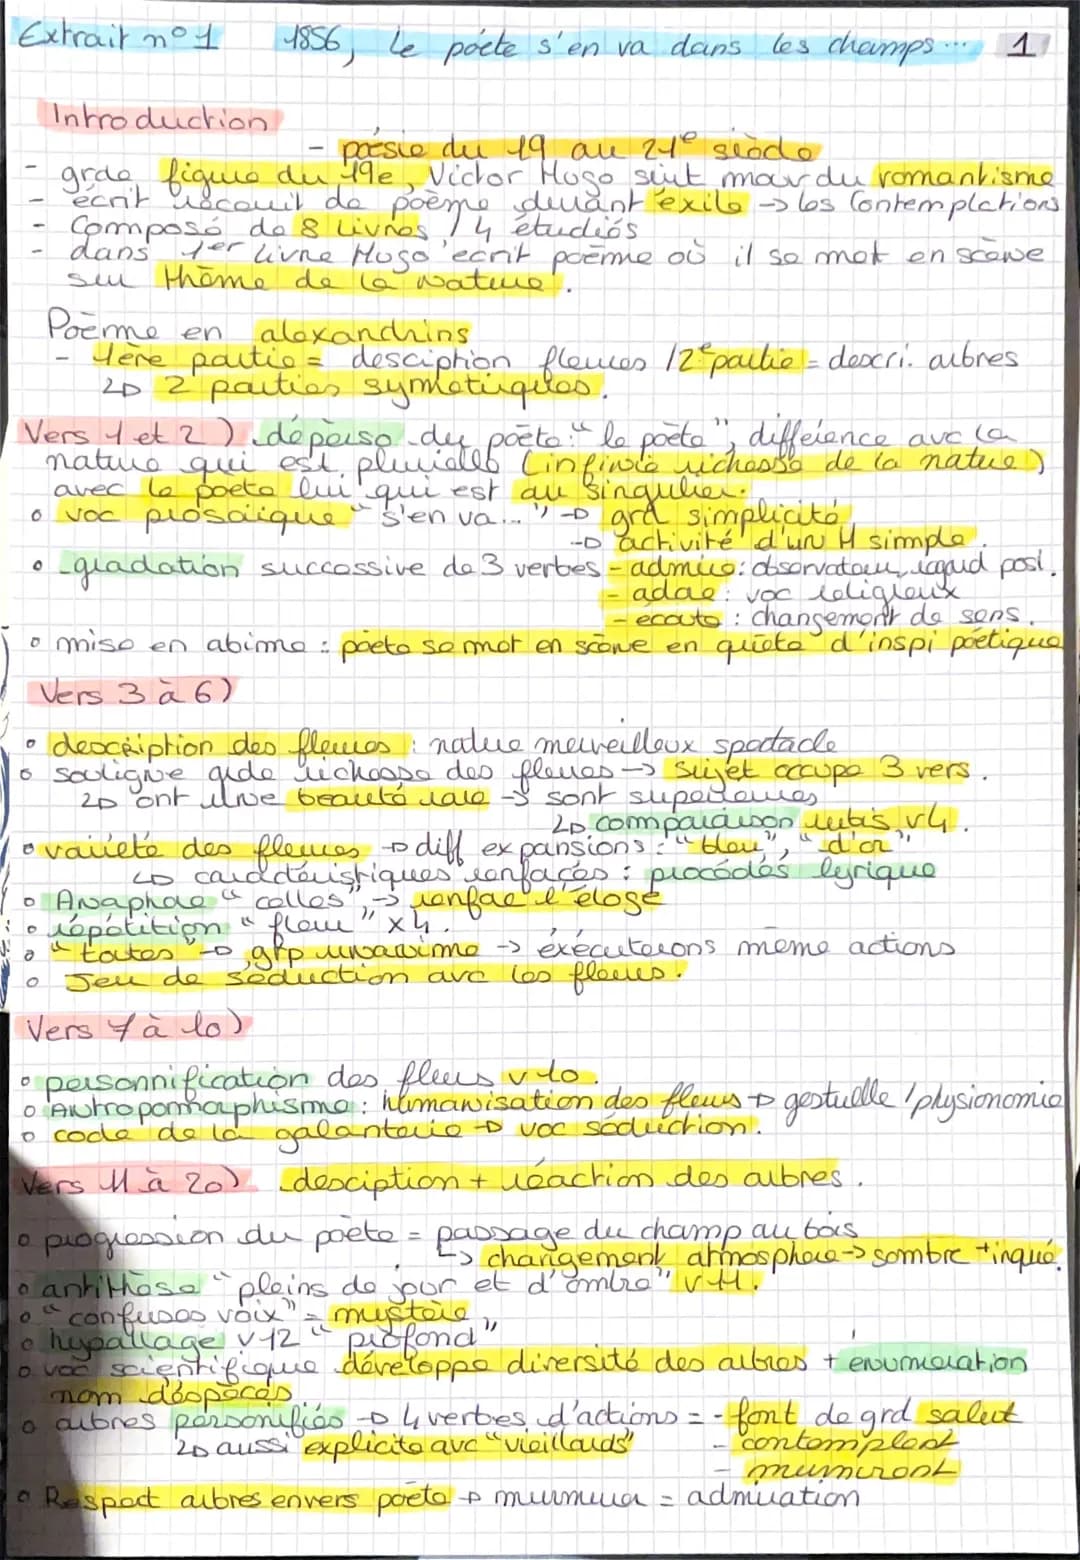 Extrait n°1 1856, Le poète s'en va dans les champs... 1
Introduction
- poésie du 19 au 21e siècle
- grde figure du 19e, Victor Hugo mar du romantisme
- écrit recueil de poème durant exile → les Contemplations
- Composé de 8 Livres / 4 étudiés
- dans 1er livre Hugo écrit poème où il se met en scène
sur thème de la nature.
Poème en alexandrins
- 1ère partie = desciption fleures / 2e partie = descri. arbres
↳ 2 parties symetriques.
Vers 1 et 2) déperso du poète: "le poète", différence avc la
nature qui est plurielle (infinie richesse de la nature)
avec le poète lui qui est au singulier.
• voc prosaïque "s'en va..." → grd simplicité
→ activité d'un H simple.
• gradation successive de 3 verbes - admire: observateur, regard posi.
- adore: voc religieux
- ecoute: changement de sens.
• mise en abime: poète se met en scène en quète d'inspi poétique
Vers 3 à 6)
• description des fleures: nature merveilleux spectacle
• souligne grde richesse des fleures → sujet occupe 3 vers.
↳ ont une beauté rare → sont superieures
↳ comparaison rubis v4.
• variété des fleures → diff expansions: "bleu", "d'or"
↳ caractéristiques renfocés: procédés lyrique
• Anaphore "celles" → renfoc l'éloge
• répétition "fleur" x4.
• "toutes" → grp unanime → éxécuterons même actions
• Jeu de séduction avc les fleures.
Vers 7 à 10)
• personnification des fleurs v10.
• Antropomorphisme: humanisation des fleurs → gestuelle / physionomie
• code de la galanterie → voc séduction.
Vers 11 à 20) desciption + réaction des arbres.
• progression du poète = passage du champ au bois
↳ changement atmosphere → sombre + inqué.
• antithèse "pleins de jour et d'ombre" v11.
• "confuses voix" = mystère
• hypallage v12 "profond"
• voc scientifique développe diversité des arbres + enumeration
nom déspèces
• arbres personifiés → 4 verbes d'actions = - font de grd salut
↳ aussi explicite avc "vieillards" - contemplent
- murmuront
• Respect arbres envers poète → murmure = admiration